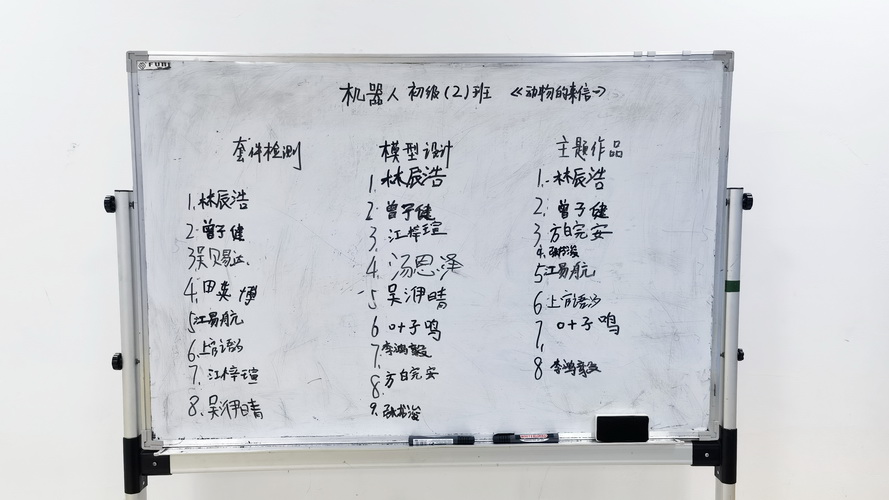 机器人 初级(2)班 《动物的来信》
套件检测
1.林辰浩
2.曾子健
3吴贝易正
4.田奕
5江易航
6.上官语汐
7.江梓瑄
8.吴洢晴
模型设计
1.林辰浩
2.曾子健
3.江梓瑄
4.汤恩泽
5吴洢晴
6叶子鸣
7.李鸿毅
8.方白完安
9.张松浚
主题作品
1.林辰浩
2.曾子健
3方白完安
4.张松浚
5江易航
6上官语汐
7叶子鸣
8李鸿毅